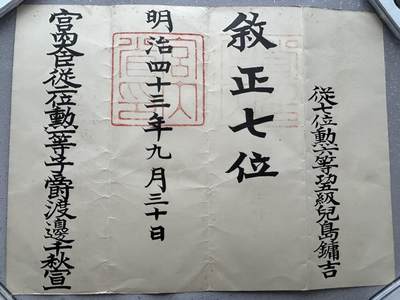 從七位勲六等功五級兒島鏞吉
敘正七位
明治四十三年九月三十日
宮内大臣從二位勲一等子爵渡邊千秋宣